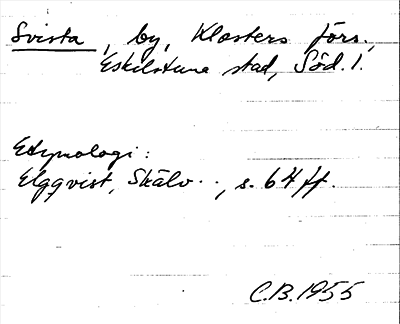 Svista, by, Klosters förs.,
Eskilstuna stad, Söd. l.
Etymologi:
Elgqvist, Skälv.., s. 64 ff.
C.B. 1955